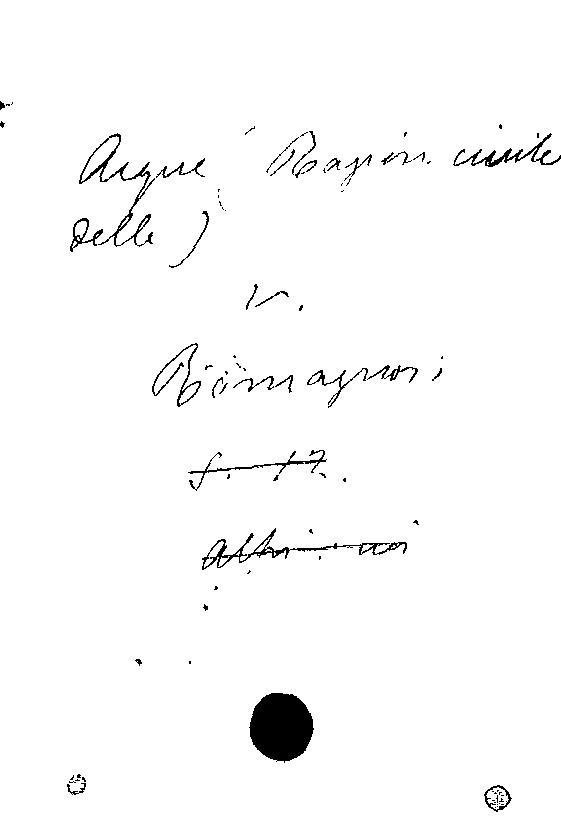 Acque (Ragion civile
delle)
v.
Romagnosi
f. 17.